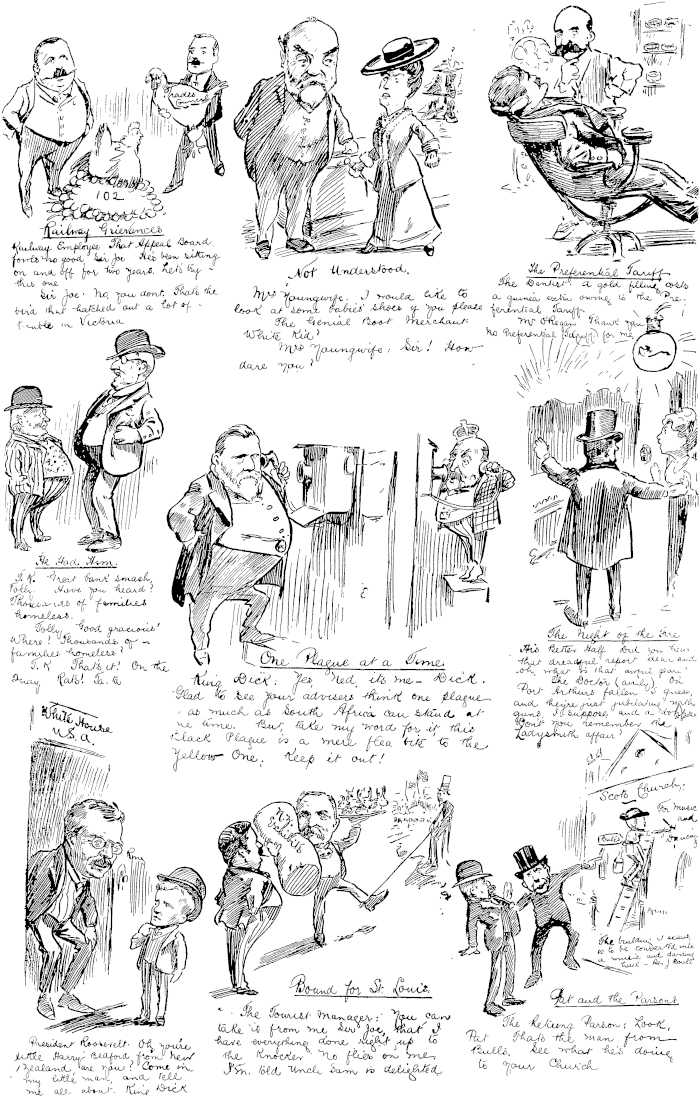 Trades
102
Railway Grievances
Railway Employee. That Appeal Board
no good Sir Joe Has been sitting
on and off for two years. Let's try
this one
Sir Joe: No, you dont. That's the
bird that hatched out a lot of
trouble in Victoria
Not Understood.
Mrs Youngwife. I would like to
look at some babies' shoes if you please
The Genial Boot Merchant:
White Kid?
Mrs Youngwife: Sir! How
dare you?
The Preferential Tariff
The Dentist: A gold filling costs
a guinea extra owing to the Pre-
ferential Tariff
Mr O'Regan: Thank you
No Preferential Tariff for me
He Had Him.
T.K. Great bank smash,
Tolly. Have you heard?
Thousands of families
homeless.
Tolly. Good gracious!
Where? Thousands of
families homeless?
T.K. That's it! On the
Quay Rats! Ta-ta
One Plague at a Time
King Dick: Yes, 'Ned, its me - Dick.
Glad to see your advisers think one plague
as much as South Africa can stand at
one time. But, take my word for it this
Black Plague is a mere flea bite to the
Yellow One. Keep it out!
The Night of the Fire
His Better Half Did you hear
that dreadful report dear and
oh what is that awful glare?
The Doctor: Oh
Port Arthur's fallen I guess
and they're just jubilating with
guns, I suppose, and a
Dont you remember the
Ladysmith affair
White House
U.S.A.
President Roosevelt. Oh you're
little Harry Bedford from New
Zealand are you? Come in,
my little man, and tell
me all about King Dick
Bound for St. Louis.
The Tourist Manager: You can
take it from me Sir Joe, that I
have everything done right up to
the Knocker No flies on me,
I'm told Uncle Sam is delighted
Scots Church:
For Music
and
Dancing
Bulls
The building I scout
is to be converted into
a music and dancing
hall - Rev J Coull
Pat and the Parsons
The Relieving Parson: Look,
Pat That's the man from
Bulls. See what he's doing
to your Church